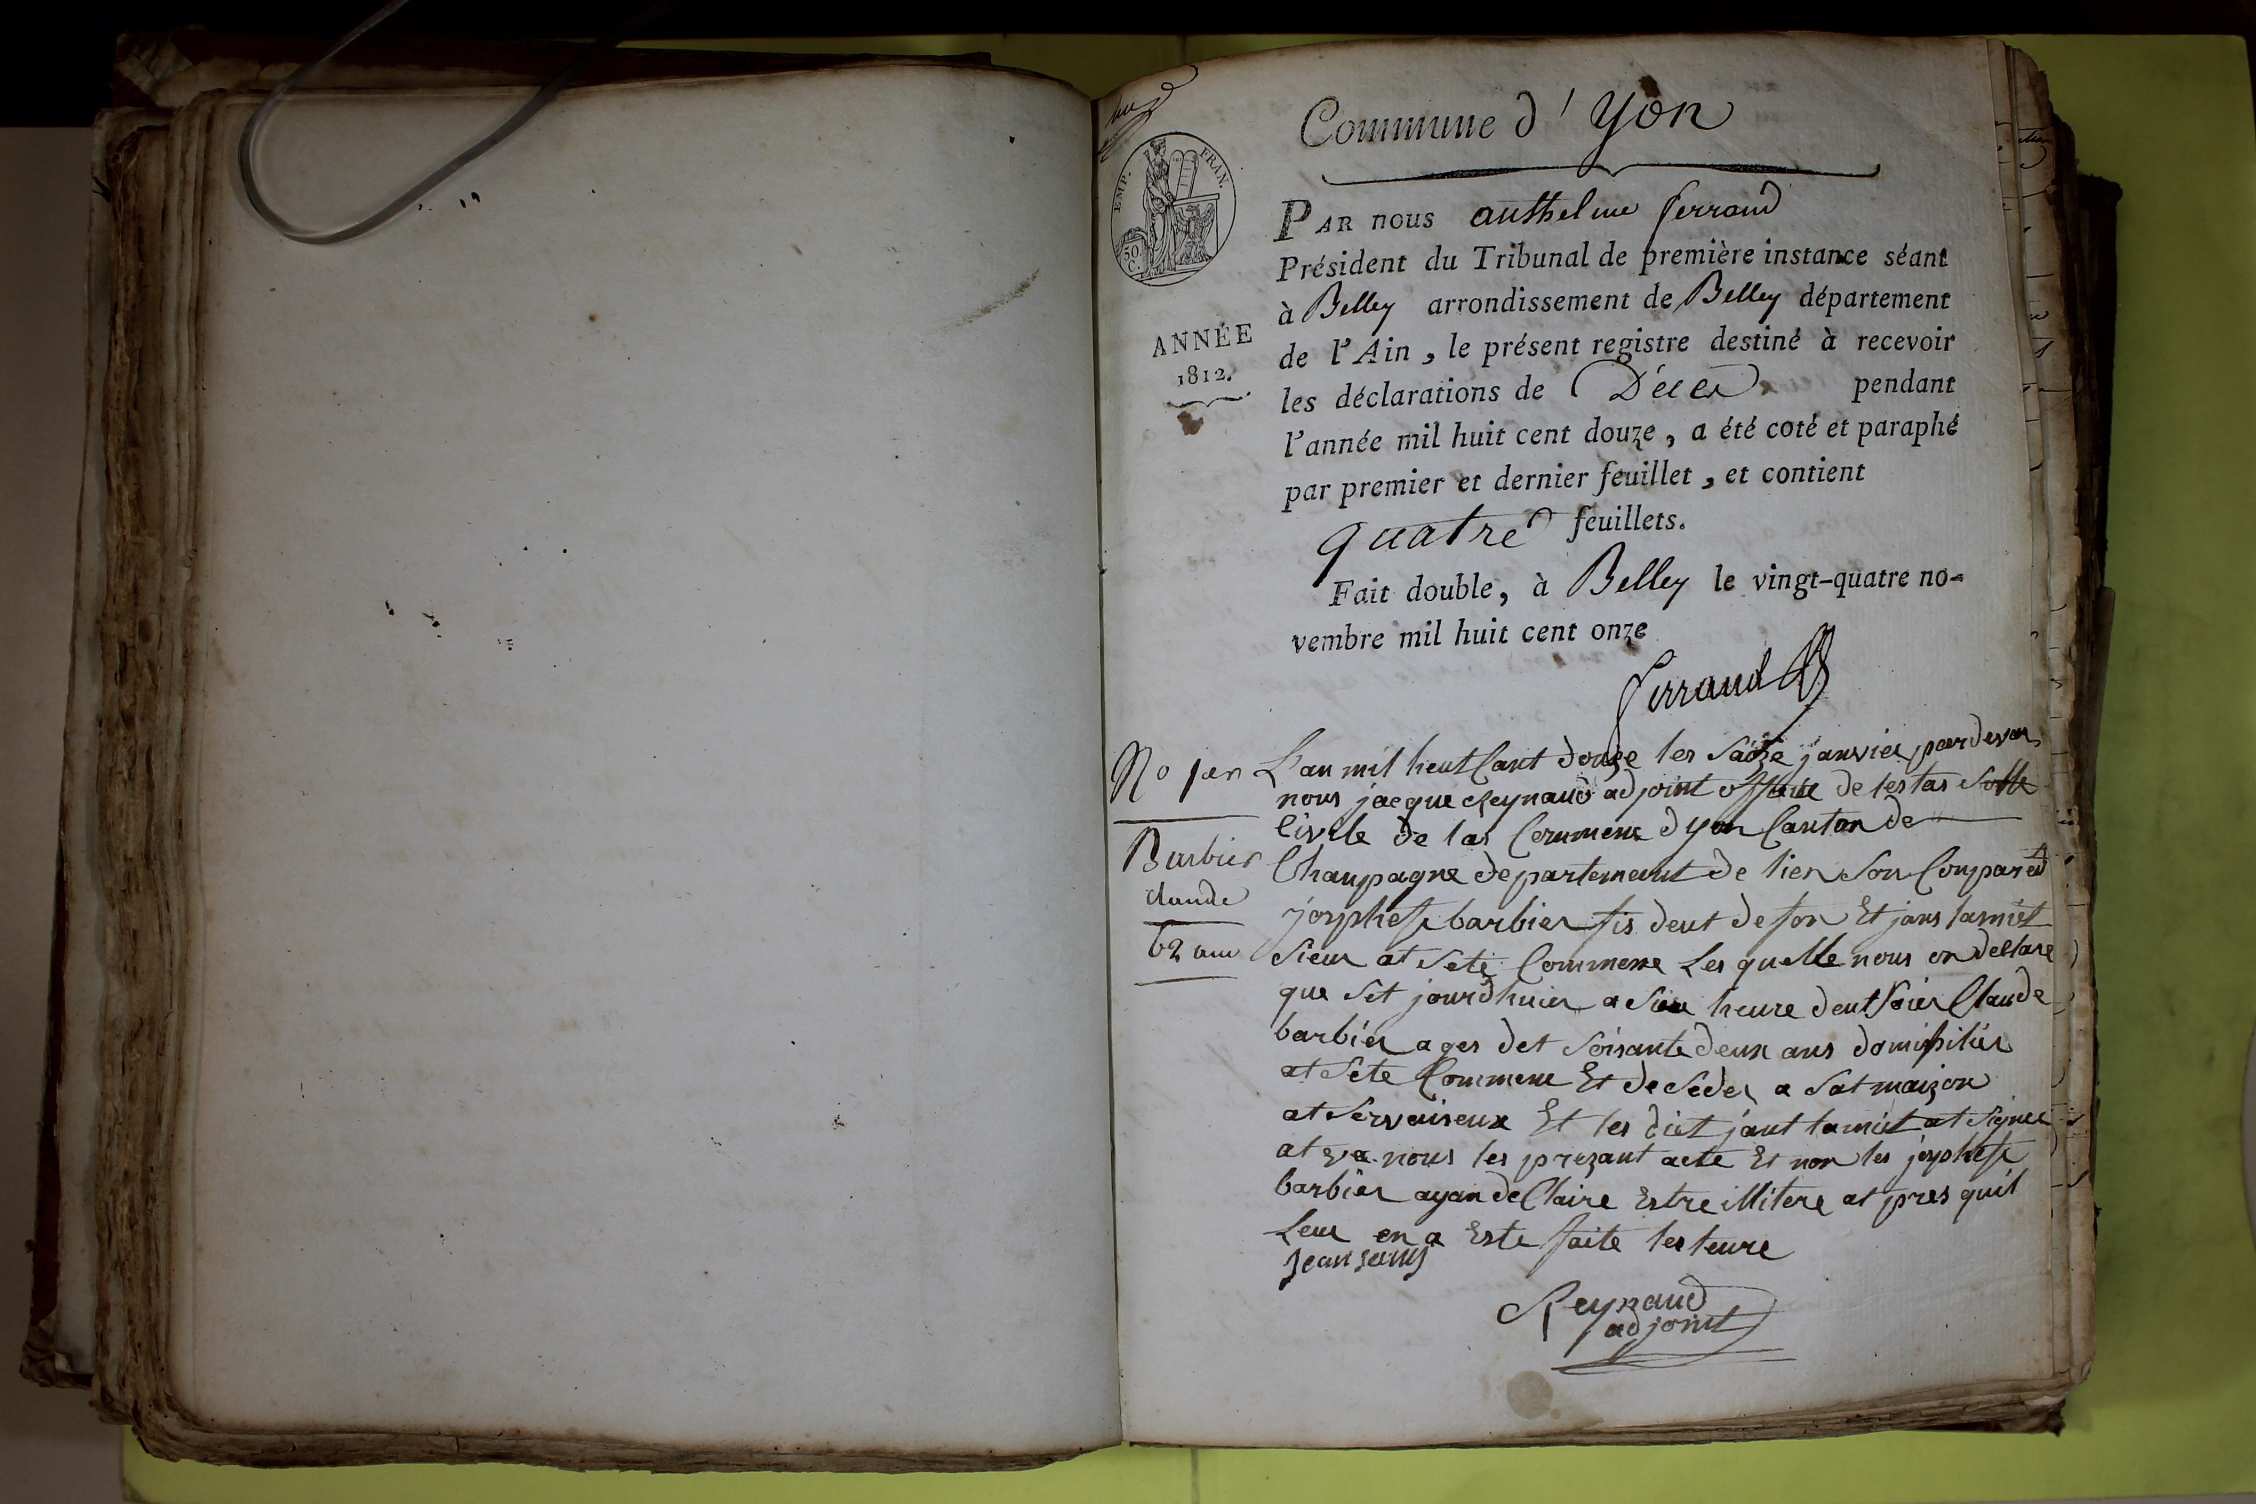 Commune d'Yon
EMP. FRAN.
50 C.
PAR nous anthelme ferrand
Président du Tribunal de première instance séant
à Belley arrondissement de Belley département
de l'Ain, le présent registre destiné à recevoir
les déclarations de Décès pendant
l'année mil huit cent douze, a été coté et paraphé
par premier et dernier feuillet, et contient
quatre feuillets.
Fait double, à Belley le vingt-quatre no-
vembre mil huit cent onze
ferrand
ANNÉE
1812.
No 1er
Barbier
claude
62 ans
L'an mil heut Cant douze les Saize janvier par devan
nous jacque Reynaud adjoint de les tas
Civile de las Commene dyon Canton de
Champagne departement de lien Son Comparet
josphe barbier fis deut de fon Et jans jamiet
Sieur at Sete Commene Les quelle nous on declare
que Set jourdhuier a heure deut Soier Claude
barbier ages det Soisante deux ans domisilier
at Sete Commene Et de Seder a Sat maizon
at Servaiseux Et les dict jant jamiet at Signer
at ve nous les prezant acte Et non les josphe
barbier ayan de Claire Estre illitere at pres quil
Leur en a Este faite lesteure
Jean
Reynaud
adjoint